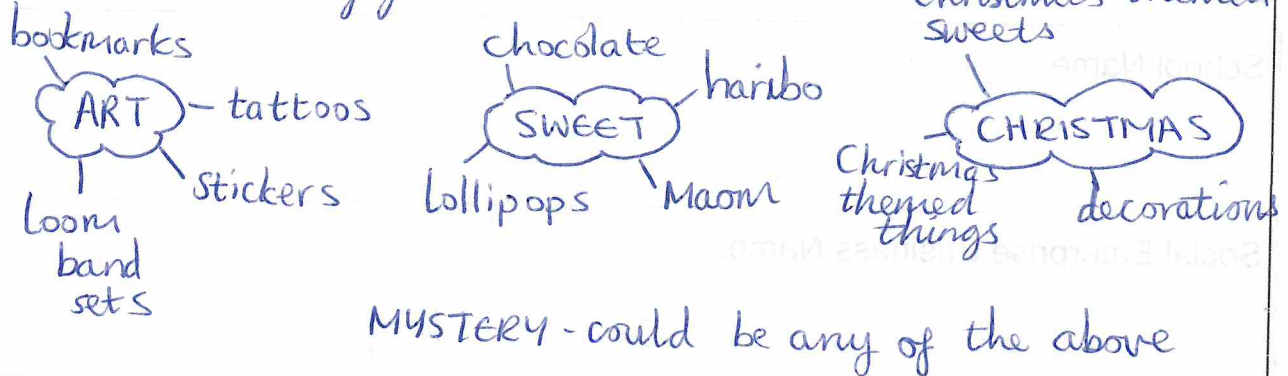 bookmarks
ART
tattoos
stickers
Loom
band
sets
chocolate
SWEET
haribo
Lollipops
Maom
sweets
CHRISTMAS
Christmas
themed
things
decorations
MYSTERY - could be any of the above